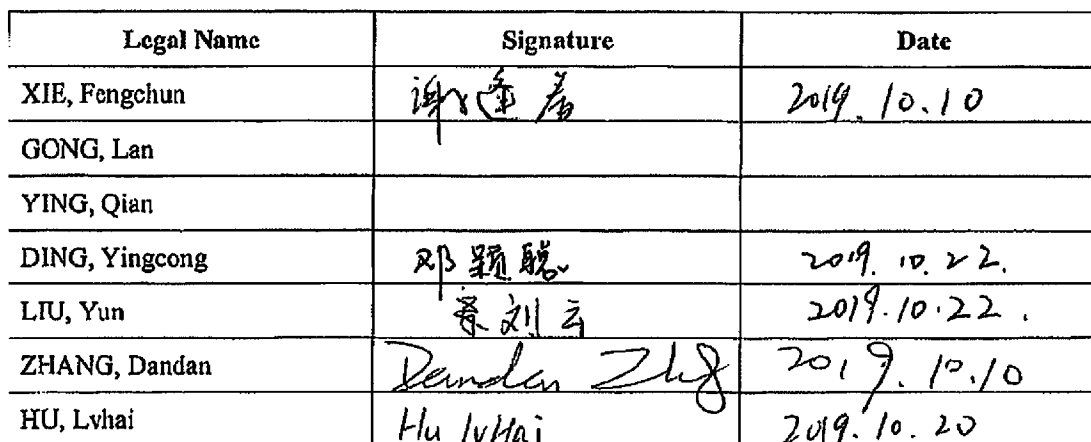 Legal Name Signature Date
XIE, Fengchun 谢逢春 2019.10.10
GONG, Lan
YING, Qian
DING, Yingcong 邓颖聪 2019.10.22.
LIU, Yun 刘云 2019.10.22.
ZHANG, Dandan Dandan Zhg 2019.10.10
HU, Lvhai Hu lvHai 2019.10.20